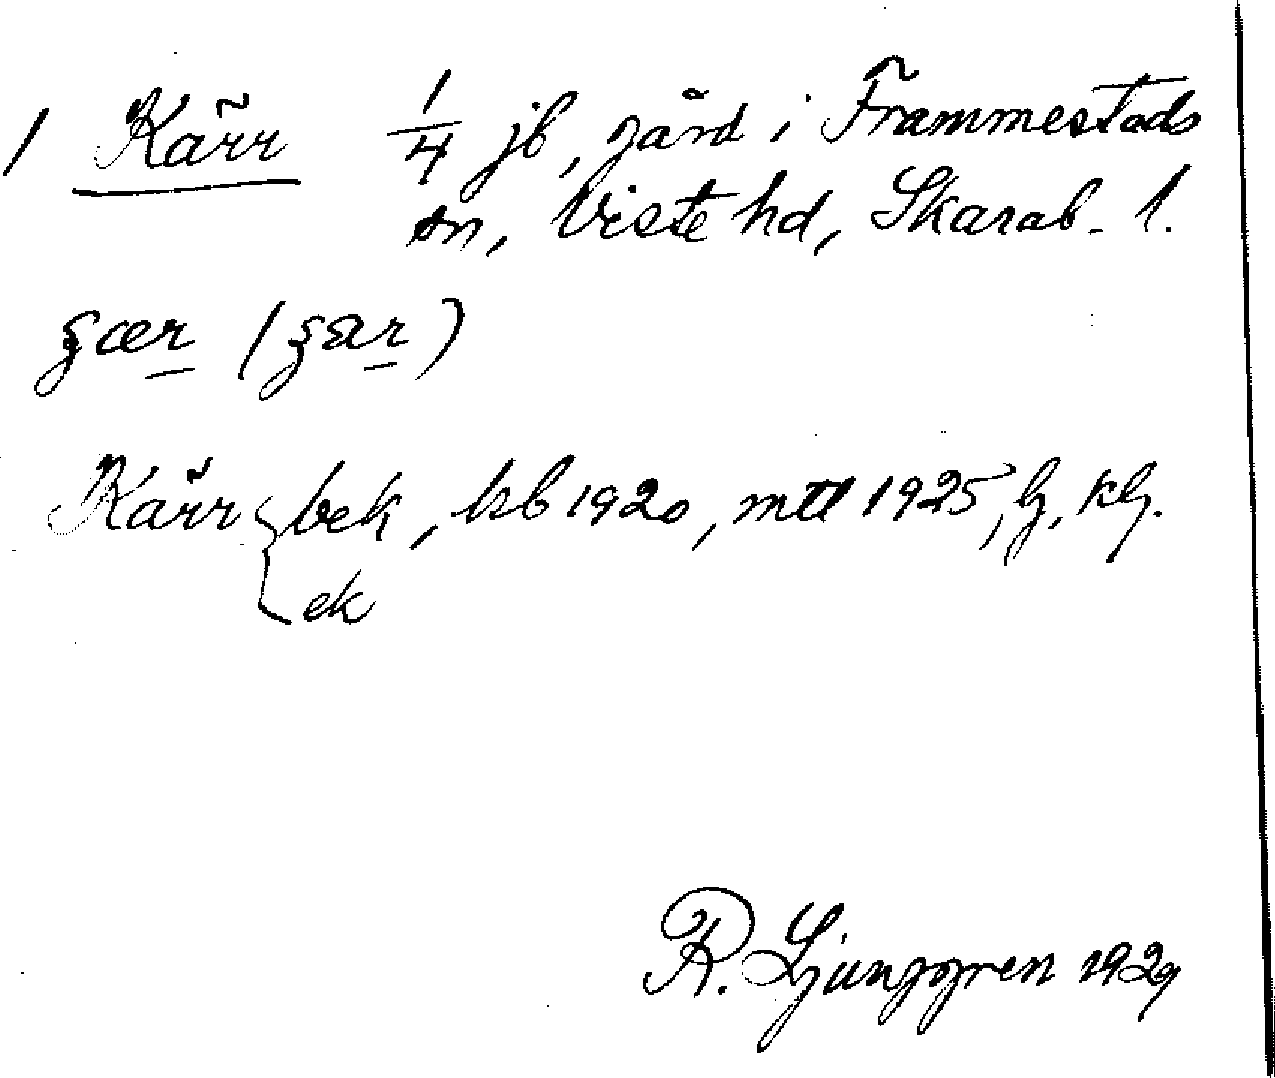 1 Kärr 1/4 jb, gård i Frammestads
sn, Viste hd, Skarab. l.
ʒær (ʒar)
Kärr { bek, kb 1920, mtl 1925, lj, klj.
ek
R. Ljunggren 1929